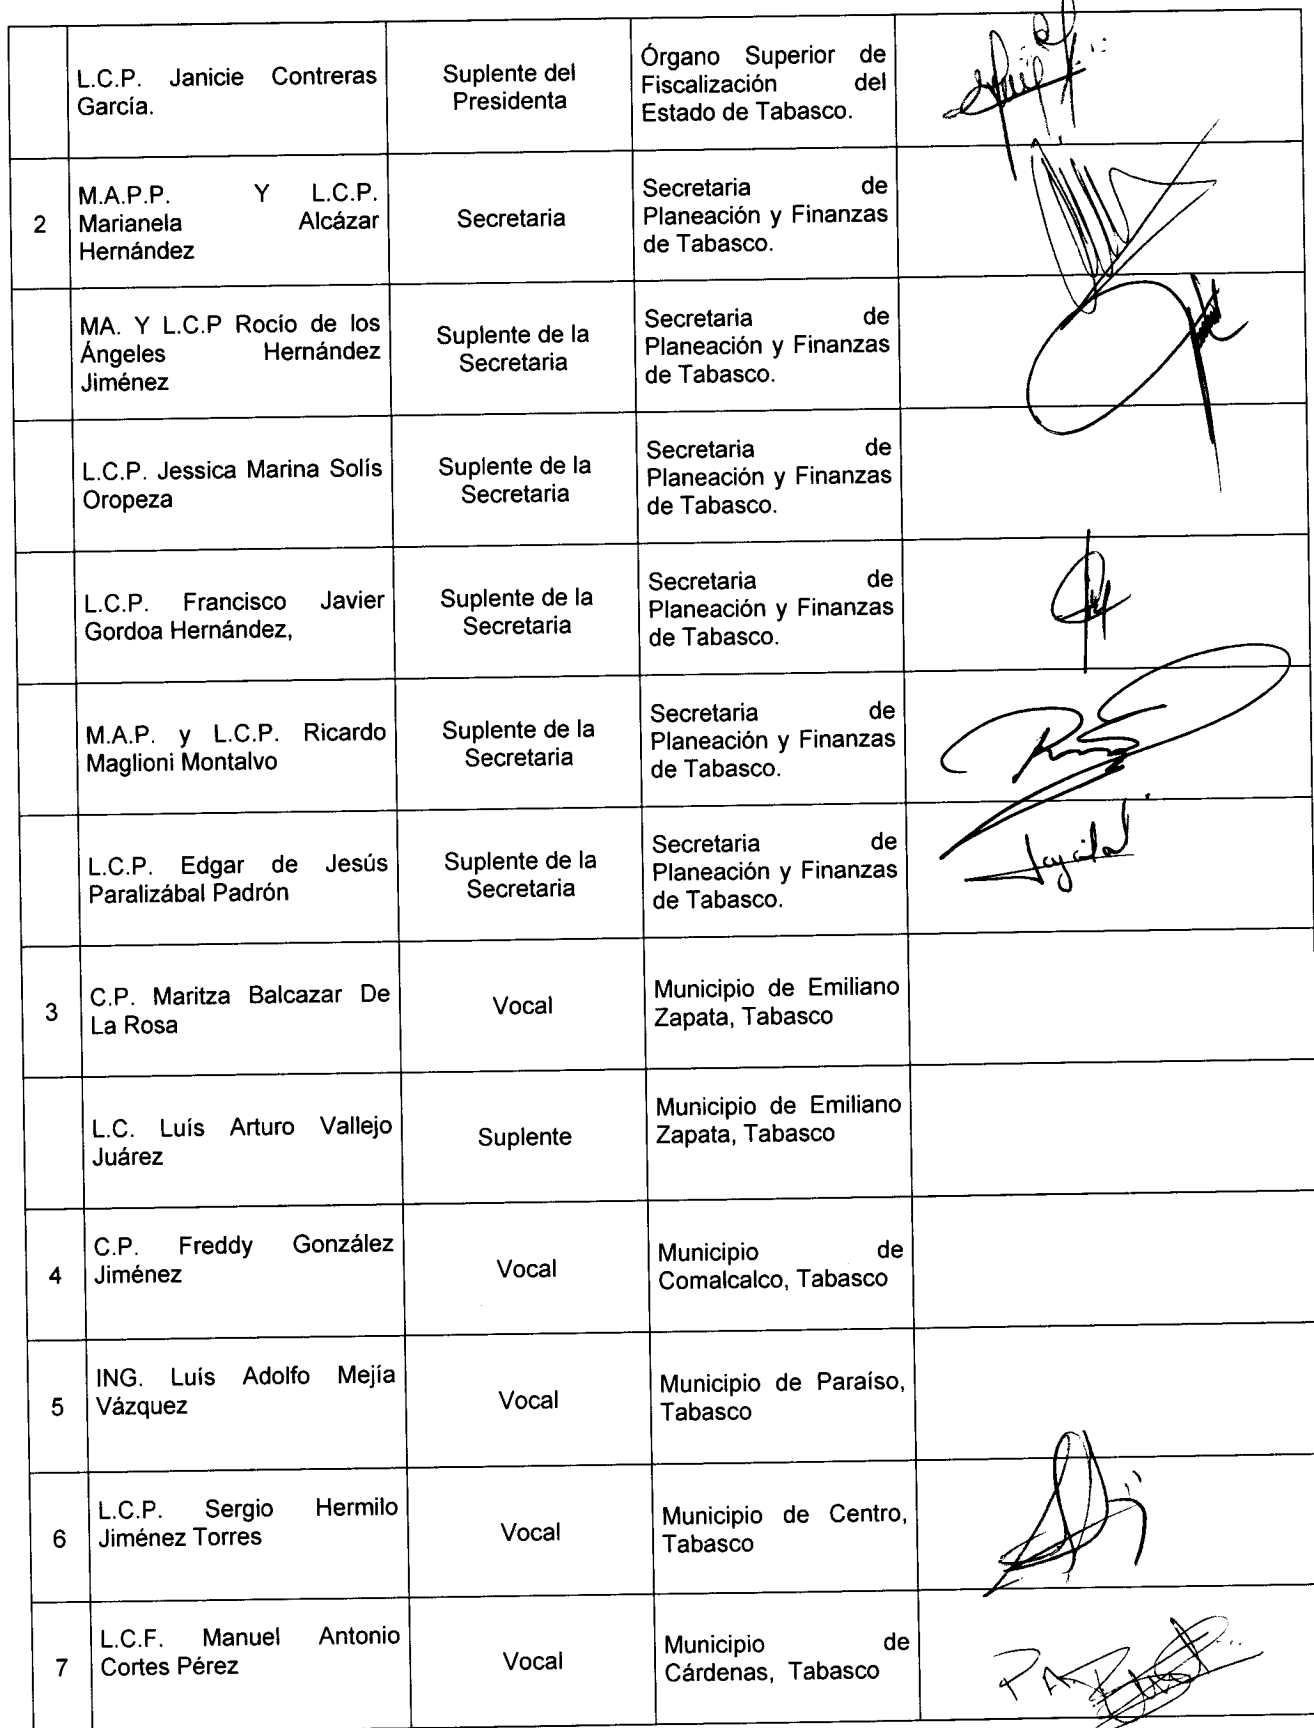 L.C.P. Janicie Contreras
García.
Suplente del
Presidenta
Órgano Superior de
Fiscalización del
Estado de Tabasco.
2
M.A.P.P. Y L.C.P.
Marianela Alcázar
Hernández
Secretaria
Secretaria de
Planeación y Finanzas
de Tabasco.
MA. Y L.C.P Rocío de los
Ángeles Hernández
Jiménez
Suplente de la
Secretaria
Secretaria de
Planeación y Finanzas
de Tabasco.
L.C.P. Jessica Marina Solís
Oropeza
Suplente de la
Secretaria
Secretaria de
Planeación y Finanzas
de Tabasco.
L.C.P. Francisco Javier
Gordoa Hernández,
Suplente de la
Secretaria
Secretaria de
Planeación y Finanzas
de Tabasco.
M.A.P. y L.C.P. Ricardo
Maglioni Montalvo
Suplente de la
Secretaria
Secretaria de
Planeación y Finanzas
de Tabasco.
L.C.P. Edgar de Jesús
Paralizábal Padrón
Suplente de la
Secretaria
Secretaria de
Planeación y Finanzas
de Tabasco.
3
C.P. Maritza Balcazar De
La Rosa
Vocal
Municipio de Emiliano
Zapata, Tabasco
L.C. Luís Arturo Vallejo
Juárez
Suplente
Municipio de Emiliano
Zapata, Tabasco
4
C.P. Freddy González
Jiménez
Vocal
Municipio de
Comalcalco, Tabasco
5
ING. Luís Adolfo Mejía
Vázquez
Vocal
Municipio de Paraíso,
Tabasco
6
L.C.P. Sergio Hermilo
Jiménez Torres
Vocal
Municipio de Centro,
Tabasco
7
L.C.F. Manuel Antonio
Cortes Pérez
Vocal
Municipio de
Cárdenas, Tabasco